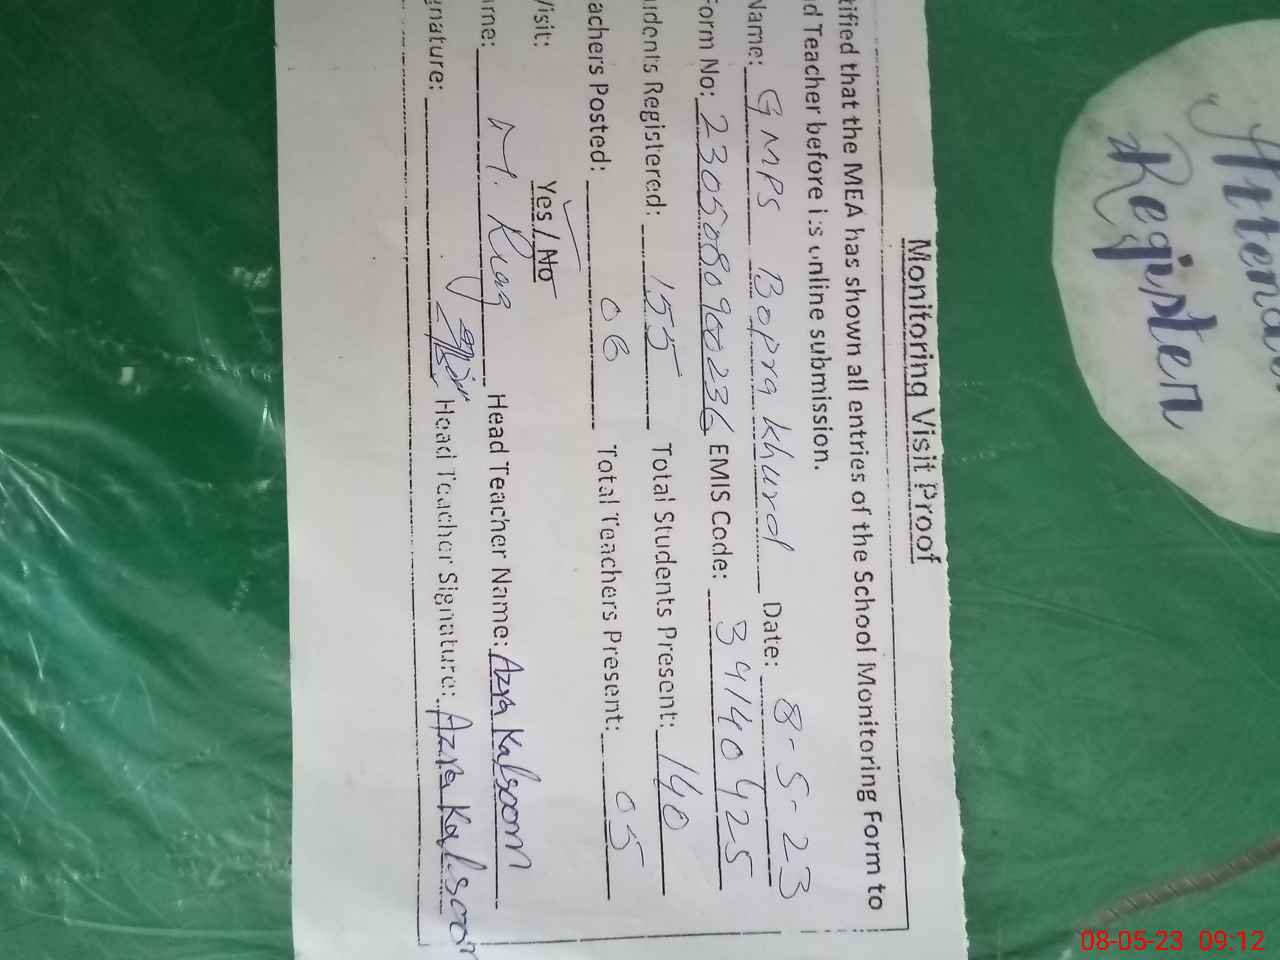 Monitoring Visit Proof
tified that the MEA has shown all entries of the School Monitoring Form to
d Teacher before its online submission.
Name: GMPS Bopra Khurd Date: 8-5-23
Form No: 2305080900236 EMIS Code: 34140425
udents Registered: 155 Total Students Present: 140
achers Posted: 06 Total Teachers Present: 05
Visit: Yes / No
me: M. Riaz Head Teacher Name: Azra Kalsoom
gnature: Head Teacher Signature: Azra Kalsoom
Attenda
Register
08-05-23 09:12